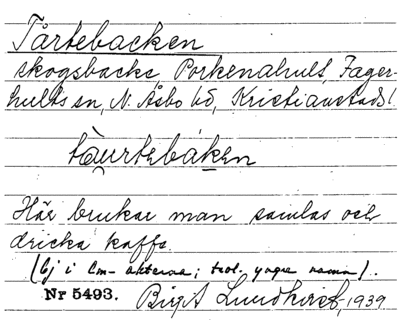 Tårtebacken
skogsbacke, Porkenahult, Fager-
hults sn, N. Åsbo hd, Kristianstads l.
tàu̯rtebáken
Här brukar man samlas och
dricka kaffe.
(Ej i Lm-akterna; trol. yngre namn).
Nr 5493. Birgit Lundkvist, 1939